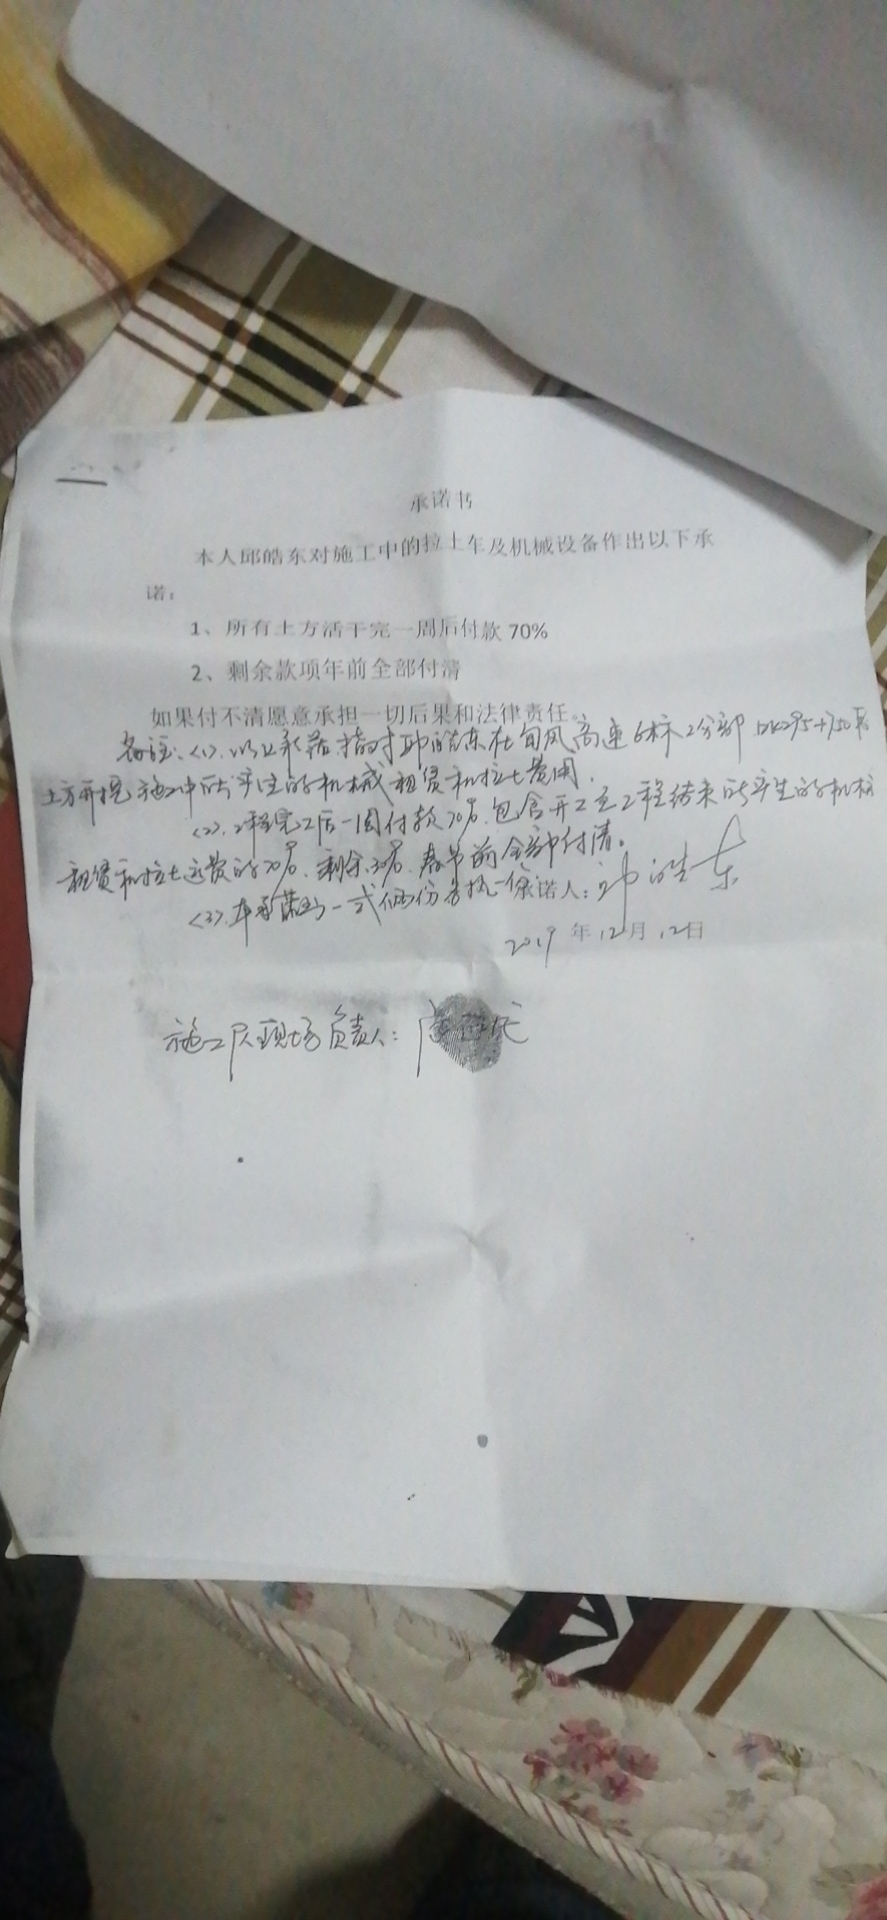 承诺书
本人邱皓东对施工中的拉土车及机械设备作出以下承
诺：
1、所有土方活干完一周后付款 70%
2、剩余款项年前全部付清
如果付不清愿意承担一切后果和法律责任。
备注：<1>. 以上承诺指对邱皓东在旬凤高速6标2分部 K295+750
土方开挖施工中所产生的机械租赁和拉土费用.
<2>. 工程完工后一周付款70%. 包含开工至工程结束所产生的机械
租赁和拉土运费的70%. 剩余30%. 春节前全部付清。
<3>. 本承诺书一式俩份各执一份
承诺人：邱皓东
2019 年 12 月 12 日
施工队现场负责人：